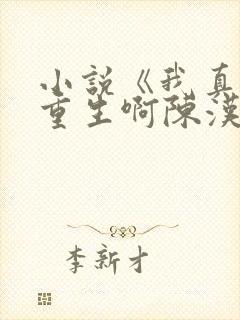 小説《我真
重生啊陳漢
李新才